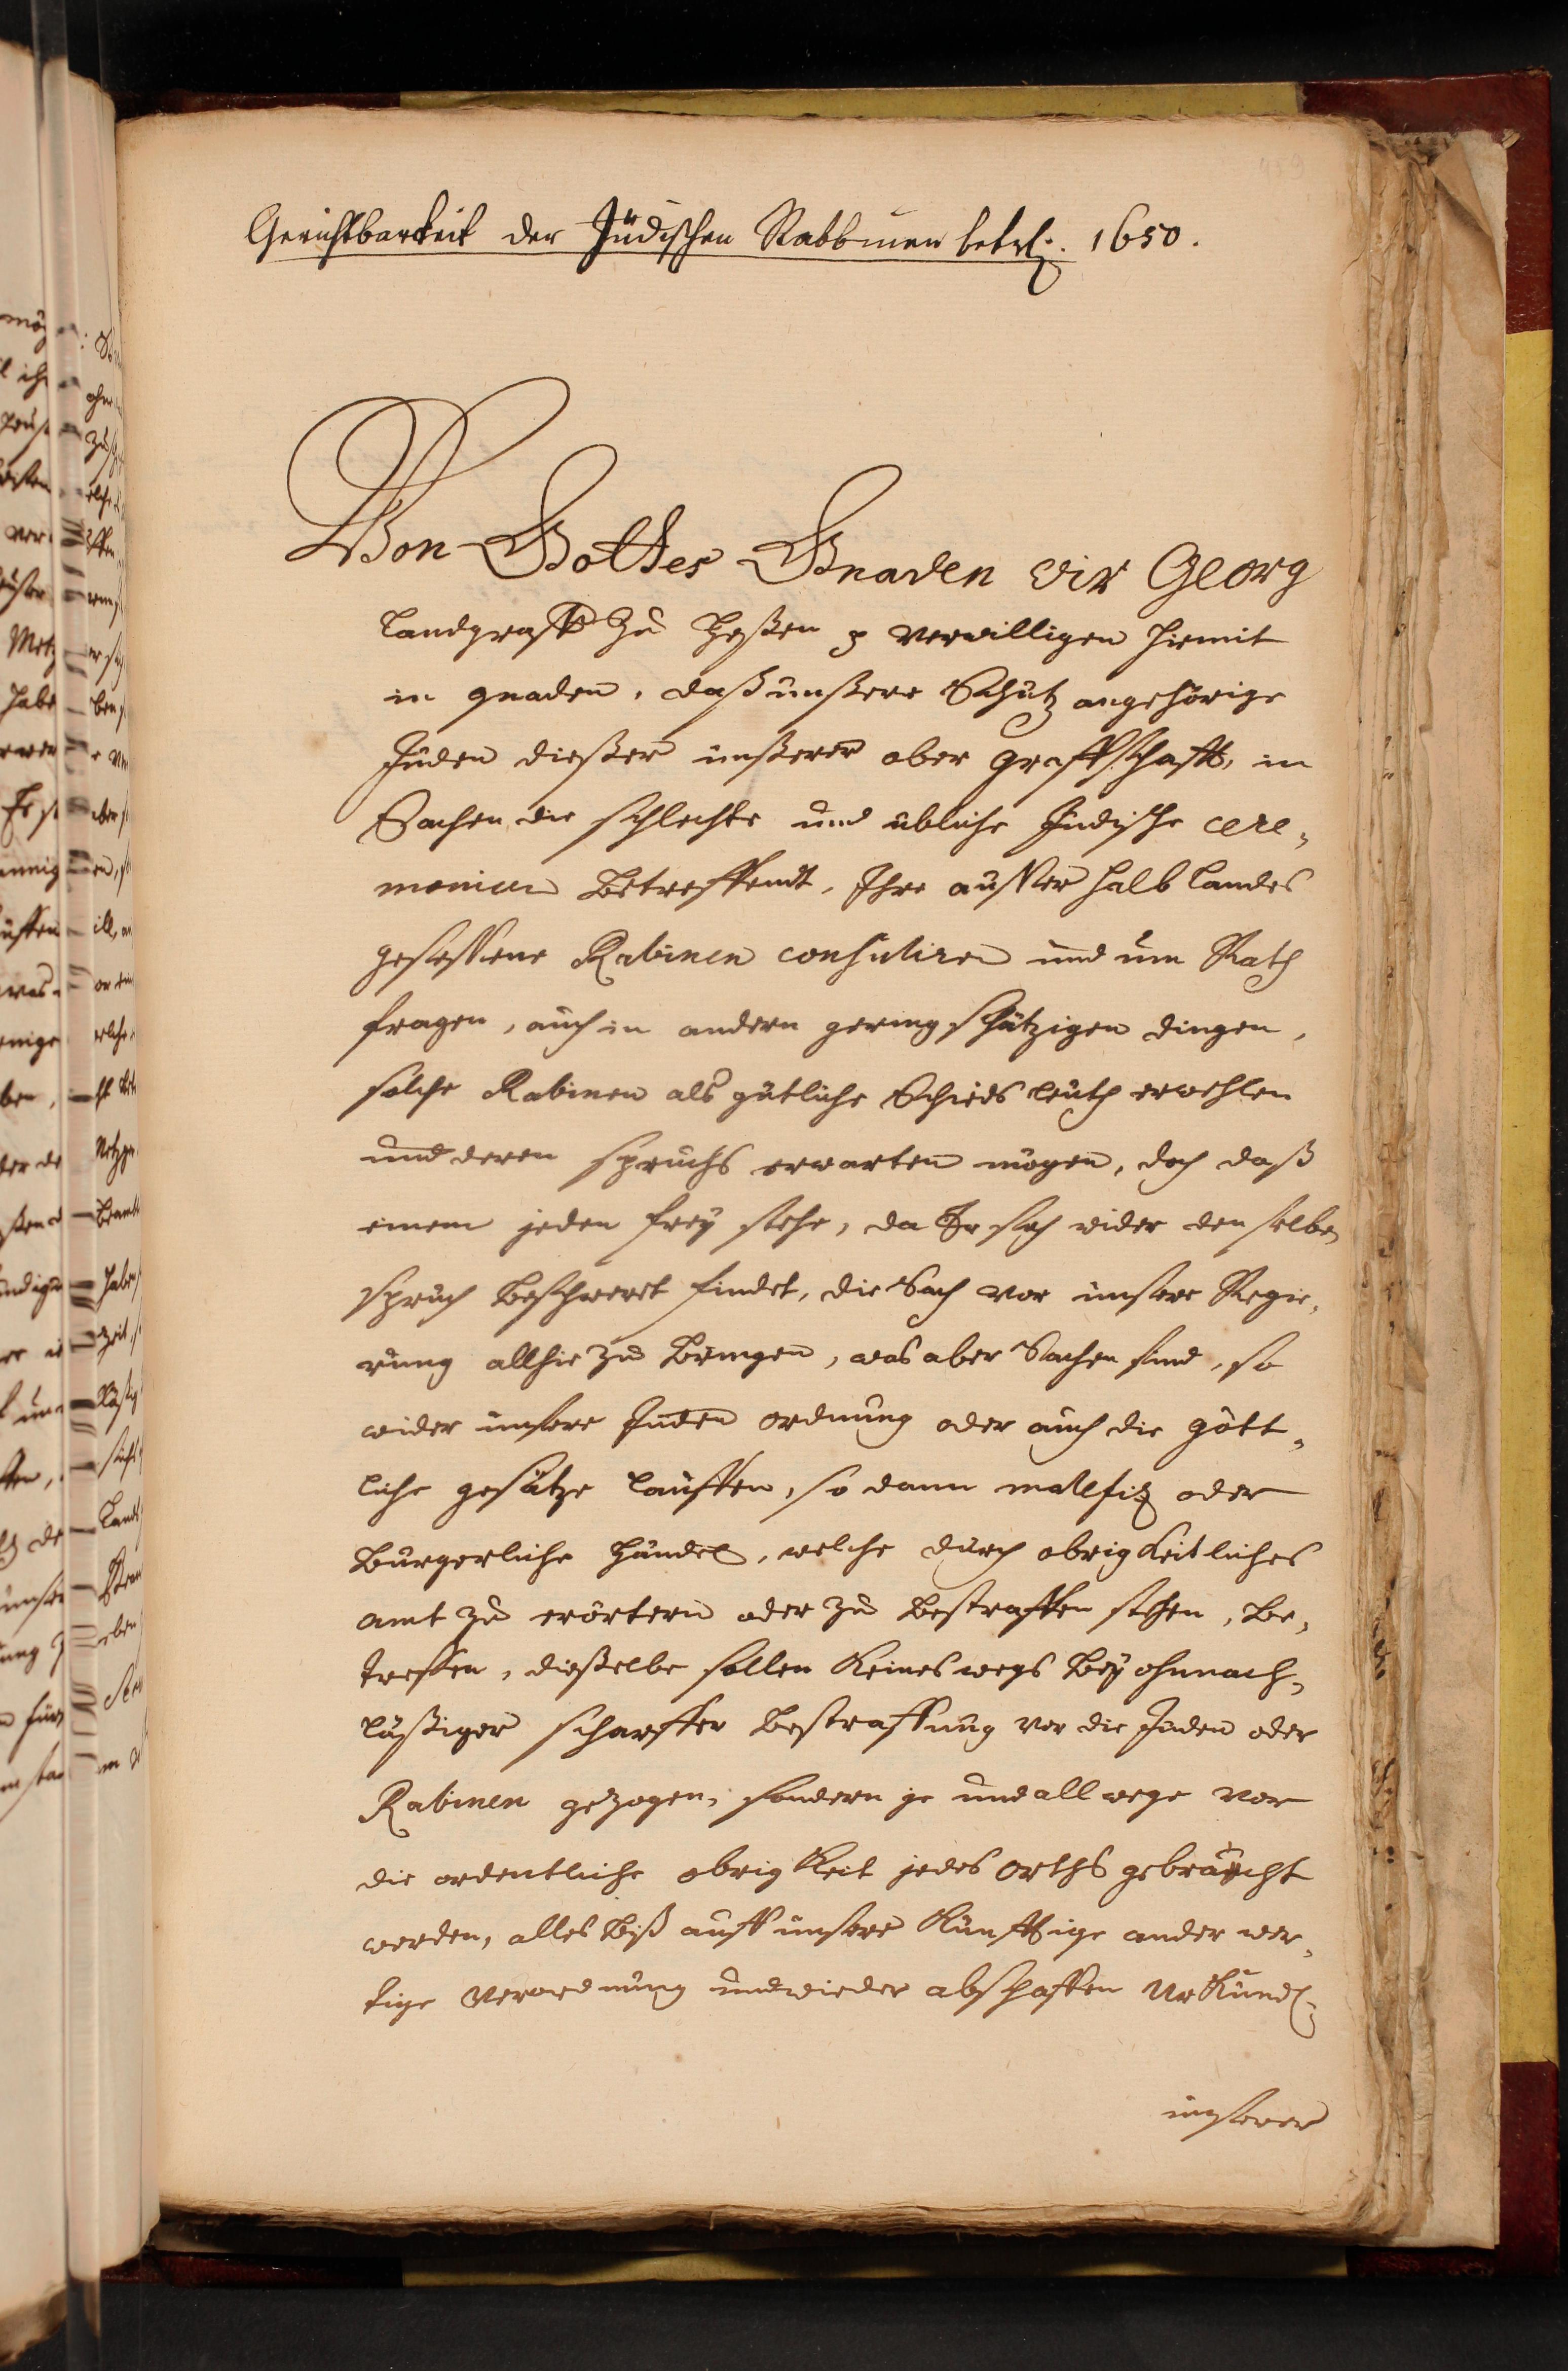 Gerichtbarkeit der Jüdischen Rabbinen betrf. 1650.
Von Gottes Gnaden wir Georg
Landgraff zu Heßen p verwilligen hiemit
in gnaden, daß unßere Schutz angehörige
Juden dießer unßerer ober graffschafft, in
Sachen die schlechte und übliche Jüdische cere„
monien Betreffendt, Ihre ausser halb Landes
gesessene Rabinen consuliren und um Rath
fragen, auch in andern gering schätzigen dingen,
solche Rabinen als gütliche Schieds leuth erwehlen
und deren spruchs erwarten mögen, doch daß
einem jeden frey stehe, da Er sich wider denselben
spruch beschwert findet, die Sach vor unsere Regie„
rung allhie zu bringen, was aber Sachen sind, so
wider unsere Juden ordnung oder auch die gött„
liche gesätze lauffen, so dann malefiz oder
Burgerliche händel, welche durch obrigkeitliches
amt zu erörtern oder zu bestraffen stehen, be„
treffen, dießelbe sollen keines wegs bey ohnnach„
läßiger scharffer bestraffung vor die Juden oder
Rabinen gezogen, sondern je und all wege vor
die ordentliche obrigkeit jedes orths gebraucht
werden, alles biß auff unsere künfftige ander wer„
tige verordnung und wieder abschaffen Urkundl.
unserer